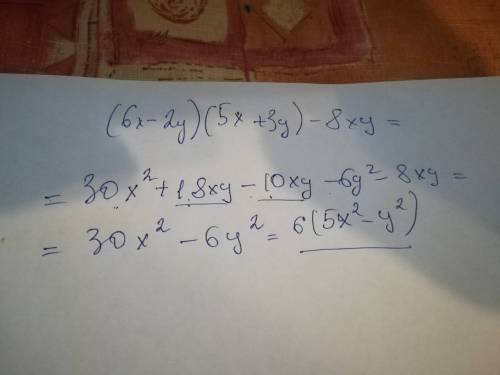 (6x-2y)(5x+3y)-8xy=
=30x²+18xy-10xy-6y²-8xy=
=30x²-6y²=6(5x²-y²)